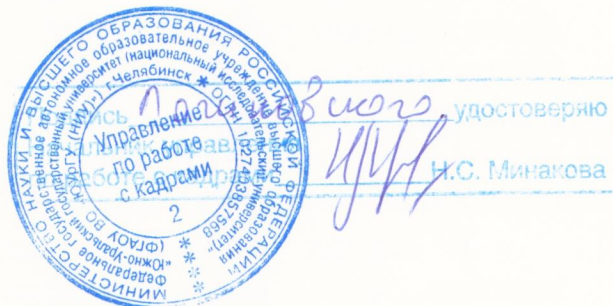 МИНИСТЕРСТВО НАУКИ И ВЫСШЕГО ОБРАЗОВАНИЯ РОССИЙСКОЙ ФЕДЕРАЦИИ
Федеральное государственное автономное образовательное учреждение высшего образования
"Южно-Уральский государственный университет (национальный исследовательский университет)"
(ФГАОУ ВО "ЮУрГУ (НИУ)") г.Челябинск * ОГРН 1027403857568
Управление
по работе
с кадрами
2
удостоверяю
Н.С. Минакова